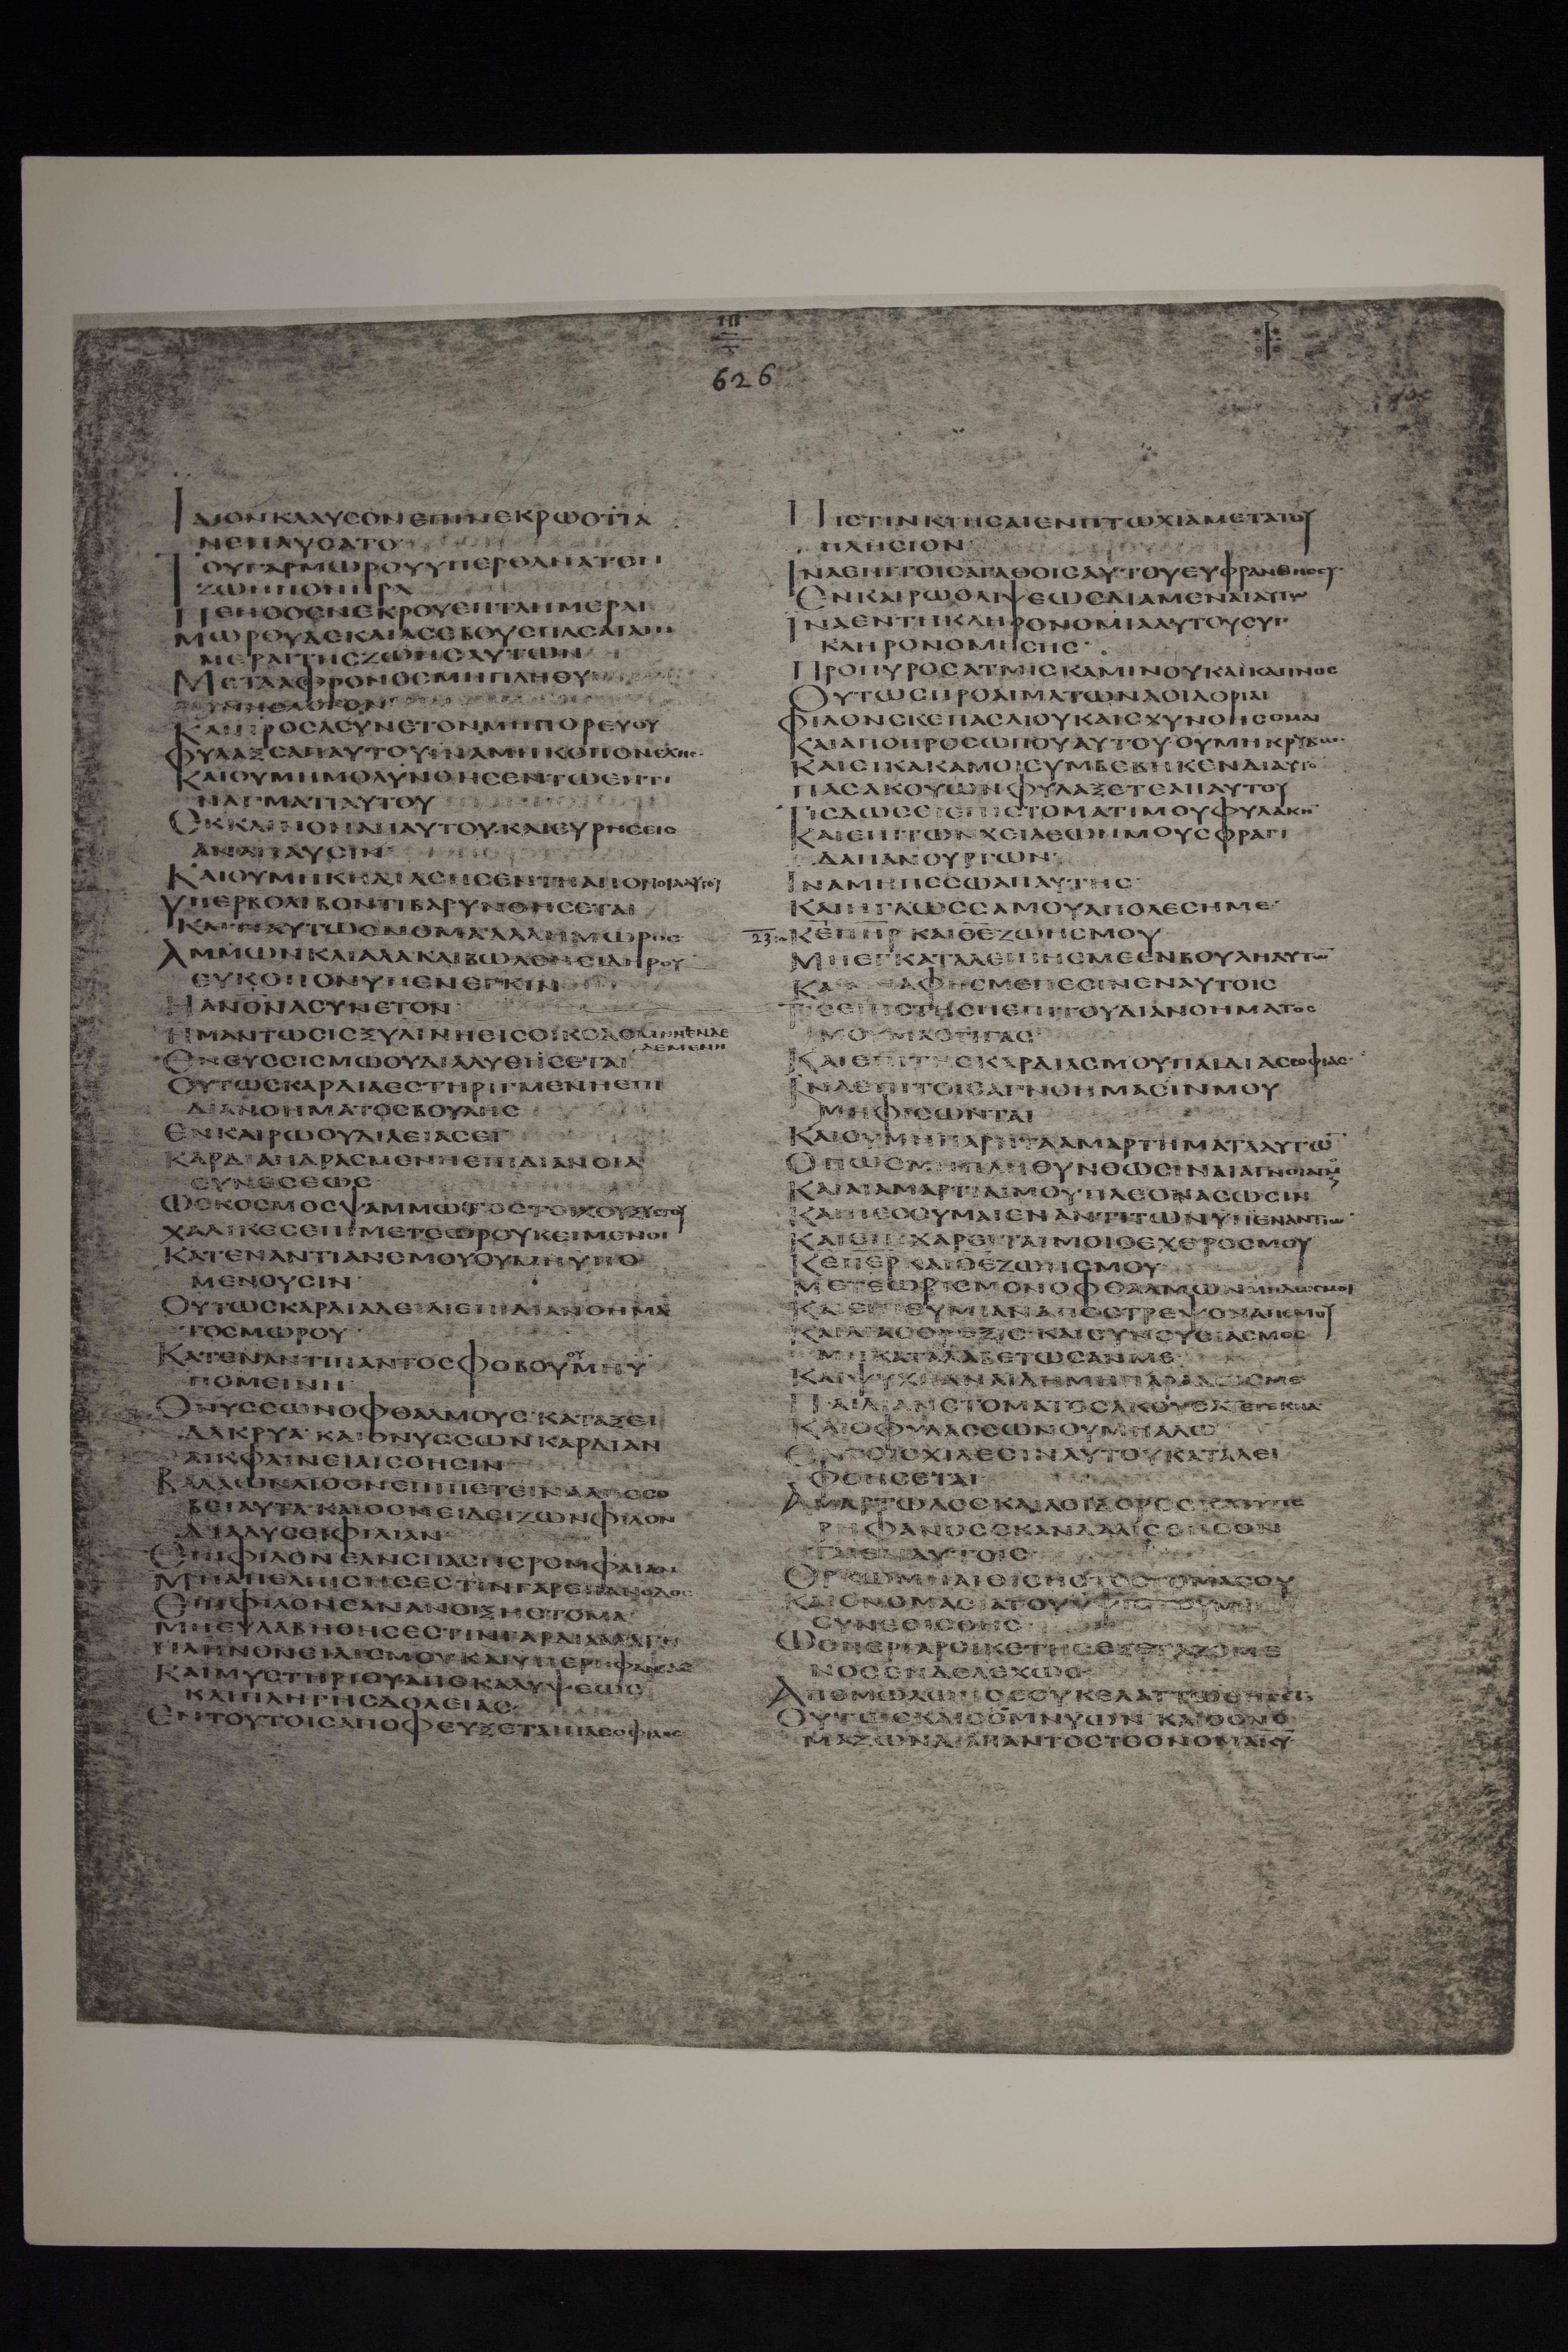 626
ΗΔΙΟΝΚΛΑΥΣΟΝΕΠΙΝΕΚΡΩΟΤΙΑ
ΝΕΠΑΥΣΑΤΟ
ΤΟΥΓΑΡΜΩΡΟΥΥΠΕΡΘΑΝΑΤΟΝ
ΖΩΗΠΟΝΗΡΑ
ΠΕΝΘΟΣΝΕΚΡΟΥΕΠΤΑΗΜΕΡΑΙ
ΜΩΡΟΥΔΕΚΑΙΑΣΕΒΟΥΣΠΑΣΑΙΑΙΗ
ΜΕΡΑΙΤΗΣΖΩΗΣΑΥΤΩΝ
ΜΕΤΑΑΦΡΟΝΟΣΜΗΠΛΗΘΥ
ΚΑΙΠΡΟΣΑΣΥΝΕΤΟΝΜΗΠΟΡΕΥΟΥ
ΦΥΛΑΞΕΑΠΑΥΤΟΥΙΝΑΜΗΚΟΠΟΝΕΧΗΣ
ΚΑΙΟΥΜΗΜΟΛΥΝΘΗΣΕΝΤΩΕΝΤΙ
ΝΑΓΜΑΤΙΑΥΤΟΥ
ΕΚΚΛΙΝΟΝΑΠΑΥΤΟΥΚΑΙΕΥΡΗΣΕΙΣ
ΑΝΑΠΑΥΣΙΝ
ΚΑΙΟΥΜΗΚΗΔΙΑΣΗΣΕΝΤΗΑΠΟΝΟΙΑΑΥΤΟΥ
ΥΠΕΡΒΟΛΙΒΟΝΤΙΒΑΡΥΝΘΗΣΕΤΑΙ
ΚΑΙΤΙΑΥΤΩΟΝΟΜΑΑΛΛΗΜΩΡΟΣ
ΑΜΜΩΝΚΑΙΑΛΑΚΑΙΒΩΛΟΝΣΙΔΗΡΟΥ
ΕΥΚΟΠΟΝΥΠΕΝΕΓΚΙΝ
ΗΑΝΟΝΑΣΥΝΕΤΟΝ
ΗΜΑΝΤΩΣΙΣΞΥΛΙΝΗΕΙΣΟΙΚΟΔΟΜΗΝΕΝΔΕ
ΔΕΜΕΝΗ
ΕΝΣΥΣΣΙΣΜΩΟΥΔΙΑΛΥΘΗΣΕΤΑΙ
ΟΥΤΩΣΚΑΡΔΙΑΕΣΤΗΡΙΓΜΕΝΗΕΠΙ
ΔΙΑΝΟΗΜΑΤΟΣΒΟΥΛΗΣ
ΕΝΚΑΙΡΩΟΥΔΙΛΕΙΑΣΕΙ
ΚΑΡΔΙΑΠΔΡΑΣΜΕΝΗΕΠΙΔΙΑΝΟΙΑ
ΣΥΝΕΣΕΩΣ
ΩΣΚΟΣΜΟΣΨΑΜΜΩΤΟΣΤΟΙΧΟΥΞΥΣΤΟΥ
ΧΑΛΙΚΕΣΕΠΙΜΕΤΕΩΡΟΥΚΕΙΜΕΝΟΙ
ΚΑΤΕΝΑΝΤΙΑΝΕΜΟΥΟΥΜΗΥΠΟ
ΜΕΝΟΥΣΙΝ
ΟΥΤΩΣΚΑΡΔΙΑΔΕΙΛΙΕΠΙΔΙΑΝΟΗΜΑ
ΤΟΣΜΩΡΟΥ
ΚΑΤΕΝΑΝΤΙΠΑΝΤΟΣΦΟΒΟΥΟΥΜΗΥ
ΠΟΜΕΙΝΗ
ΟΝΥΣΣΩΝΟΦΘΑΛΜΟΥΣΚΑΤΑΞΕΙ
ΔΑΚΡΥΑΚΑΙΟΝΥΣΣΩΝΚΑΡΔΙΑΝ
ΕΚΦΑΙΝΕΙΑΙΣΘΗΣΙΝ
ΒΑΛΛΩΝΛΙΘΟΝΕΠΙΠΕΤΕΙΝΑΑΠΟΣΟ
ΒΕΙΑΥΤΑΚΑΙΟΟΝΕΙΔΕΙΖΩΝΦΙΛΟΝ
ΔΙΑΛΥΣΕΙΦΙΛΙΑΝ
ΕΠΙΦΙΛΟΝΕΑΝΣΠΑΣΗΣΡΟΜΦΑΙΑΝ
ΜΗΑΠΕΛΠΙΣΗΣΕΣΤΙΝΓΑΡΕΠΑΝΟΔΟΣ
ΕΠΙΦΙΛΟΝΕΑΝΑΝΟΙΞΗΣΤΟΜΑ
ΜΗΕΥΛΑΒΗΘΗΣΕΣΤΙΝΓΑΡΔΙΑΛΛΑΓΗ
ΠΛΗΝΟΝΕΙΔΙΣΜΟΥΚΑΙΥΠΕΡΗΦΑΝΙΑΣ
ΚΑΙΜΥΣΤΗΡΙΟΥΑΠΟΚΑΛΥΨΕΩΣ
ΚΑΙΠΛΗΓΗΣΔΟΛΕΙΑΣ
ΕΝΤΟΥΤΟΙΣΑΠΟΦΕΥΞΕΤΑΙΠΑΣΟΦΙΛΟΣ
ΠΙΣΤΙΝΚΤΗΣΑΙΕΝΠΤΩΧΙΑΜΕΤΑΤΟΥ
ΠΛΗΣΙΟΝ
ΙΝΑΕΝΤΟΙΣΑΓΑΘΟΙΣΑΥΤΟΥΕΥΦΡΑΝΘΗΣΗ
ΕΝΚΑΙΡΩΘΛΙΨΕΩΣΔΙΑΜΕΝΑΙΑΥΤΩ
ΙΝΑΕΝΤΗΚΛΗΡΟΝΟΜΙΑΑΥΤΟΥΣΥΓ
ΚΛΗΡΟΝΟΜΗΣΗΣ
ΠΡΟΠΥΡΟΣΑΤΜΙΣΚΑΜΙΝΟΥΚΑΙΚΑΠΝΟΣ
ΟΥΤΩΣΠΡΟΑΙΜΑΤΩΝΛΟΙΔΟΡΙΑΙ
ΦΙΛΟΝΣΚΕΠΑΣΑΙΟΥΚΑΙΣΧΥΝΘΗΣΟΜΑΙ
ΚΑΙΑΠΟΠΡΟΣΩΠΟΥΑΥΤΟΥΟΥΜΗΚΡΥΒΩ
ΚΑΙΕΙΚΑΚΑΜΟΙΣΥΜΒΕΒΗΚΕΝΔΙΑΥΤΟ
ΠΑΣΑΚΟΥΩΝΦΥΛΑΞΕΤΕΑΠΑΥΤΟΥ
ΤΙΣΔΩΣΕΙΕΠΙΣΤΟΜΑΤΙΜΟΥΦΥΛΑΚΗ
ΚΑΙΕΠΙΤΩΝΧΕΙΛΕΩΝΜΟΥΣΦΡΑΓΙ
ΔΑΠΑΝΟΥΡΓΩΝ
ΙΝΑΜΗΠΕΣΩΑΠΑΥΤΗΣ
ΚΑΙΗΓΛΩΣΣΑΜΟΥΑΠΟΛΕΣΗΜΕ
23 ΚΕΠΗΡΚΑΙΘΕΖΩΗΣΜΟΥ
ΜΗΕΓΚΑΤΑΛΕΙΠΗΣΜΕΕΝΒΟΥΛΗΑΥΤΩ
ΚΑΙΜΗΑΦΗΣΜΕΠΕΣΙΝΕΝΑΥΤΟΙΣ
ΤΙΣΕΠΙΣΤΗΣΗΕΠΙΤΟΥΔΙΑΝΟΗΜΑΤΟΣ
ΜΟΥΜΑΣΤΙΓΑΣ
ΚΑΙΕΠΙΤΗΣΚΑΡΔΙΑΣΜΟΥΠΑΙΔΙΑΣΟΦΙΑΣ
ΙΝΑΕΠΙΤΟΙΣΑΓΝΟΗΜΑΣΙΝΜΟΥ
ΜΗΦΙΣΩΝΤΑΙ
ΚΑΙΟΥΜΗΠΑΡΗΤΑΑΜΑΡΤΗΜΑΤΑΑΥΤΩ
ΟΠΩΣΜΗΠΛΗΘΥΝΘΩΣΙΝΑΙΑΓΝΟΙΑΙΜΟΥ
ΚΑΙΑΙΑΜΑΡΤΙΑΙΜΟΥΠΛΕΟΝΑΣΩΣΙΝ
ΚΑΙΠΕΣΟΥΜΑΙΕΝΑΝΤΙΤΩΝΥΠΕΝΑΝΤΙΩ
ΚΑΙΕΠΙΧΑΡΕΙΤΑΙΜΟΙΟΕΧΘΡΟΣΜΟΥ
ΚΕΠΕΡΚΑΙΘΕΖΩΗΣΜΟΥ
ΜΕΤΕΩΡΙΣΜΟΝΟΦΘΑΛΜΩΝΜΗΔΩΣΜΟΙ
ΚΑΙΕΠΙΘΥΜΙΑΝΑΠΟΣΤΡΕΨΟΝΑΠΕΜΟΥ
ΚΟΙΛΙΑΣΟΡΕΞΙΣΚΑΙΣΥΝΟΥΣΙΑΣΜΟΣ
ΜΗΚΑΤΑΛΑΒΕΤΩΣΑΝΜΕ
ΚΑΙΨΥΧΗΑΝΑΙΔΗΜΗΠΑΡΑΔΩΣΜΕ
ΠΑΙΔΙΑΝΣΤΟΜΑΤΟΣΑΚΟΥΣΑΤΕΤΕΚΝΑ
ΚΑΙΟΦΥΛΑΣΣΩΝΟΥΜΗΑΛΩ
ΕΝΤΟΙΣΧΙΛΕΣΙΝΑΥΤΟΥΚΑΤΑΛΕΙ
ΦΘΗΣΕΤΑΙ
ΑΜΑΡΤΩΛΟΣΚΑΙΛΟΙΔΟΡΟΣΚΑΙΥΠΕ
ΡΗΦΑΝΟΣΣΚΑΝΔΑΛΙΣΘΗΣΟΝ
ΤΑΙΕΝΑΥΤΟΙΣ
ΟΡΚΩΜΗΑΙΘΙΣΗΣΤΟΣΤΟΜΑΣΟΥ
ΚΑΙΟΝΟΜΑΣΙΑΤΟΥΥΨΙΣΤΟΥΜΗ
ΣΥΝΕΘΙΣΘΗΣ
ΩΣΠΕΡΓΑΡΟΙΚΕΤΗΣΕΞΕΤΑΖΟΜΕ
ΝΟΣΕΝΔΕΛΕΧΩΣ
ΑΠΟΜΩΛΩΠΟΣΟΥΚΕΛΑΤΤΩΘΗΣΕΤΑΙ
ΟΥΤΩΣΚΑΙΟΟΜΝΥΩΝΚΑΙΟΟΝΟ
ΜΑΖΩΝΔΙΑΠΑΝΤΟΣΤΟΟΝΟΜΑΚΥ